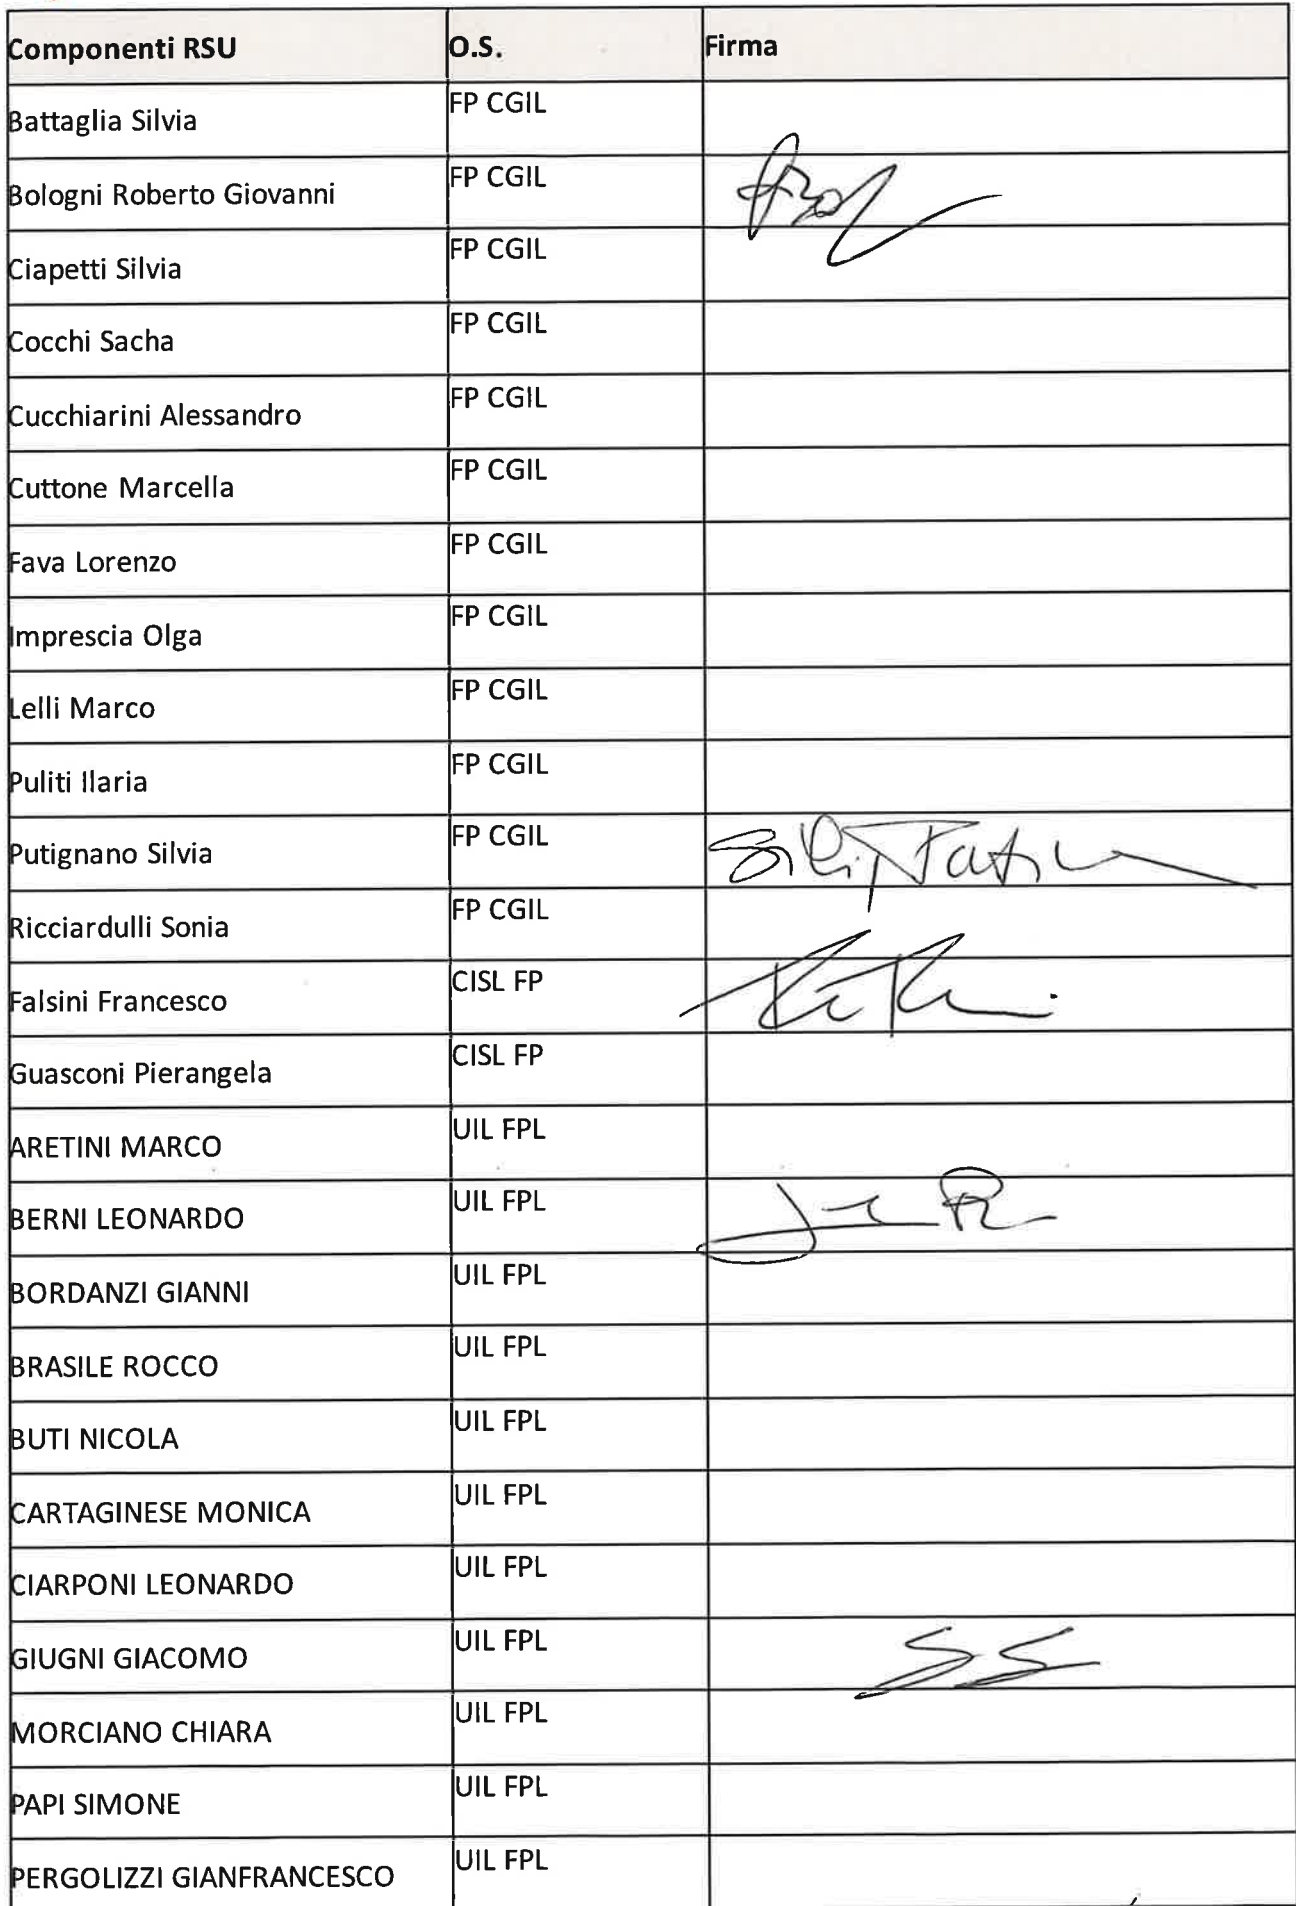 Componenti RSU O.S. Firma
Battaglia Silvia FP CGIL
Bologni Roberto Giovanni FP CGIL
Ciapetti Silvia FP CGIL
Cocchi Sacha FP CGIL
Cucchiarini Alessandro FP CGIL
Cuttone Marcella FP CGIL
Fava Lorenzo FP CGIL
Imprescia Olga FP CGIL
Lelli Marco FP CGIL
Puliti Ilaria FP CGIL
Putignano Silvia FP CGIL
Ricciardulli Sonia FP CGIL
Falsini Francesco CISL FP
Guasconi Pierangela CISL FP
ARETINI MARCO UIL FPL
BERNI LEONARDO UIL FPL
BORDANZI GIANNI UIL FPL
BRASILE ROCCO UIL FPL
BUTI NICOLA UIL FPL
CARTAGINESE MONICA UIL FPL
CIARPONI LEONARDO UIL FPL
GIUGNI GIACOMO UIL FPL
MORCIANO CHIARA UIL FPL
PAPI SIMONE UIL FPL
PERGOLIZZI GIANFRANCESCO UIL FPL